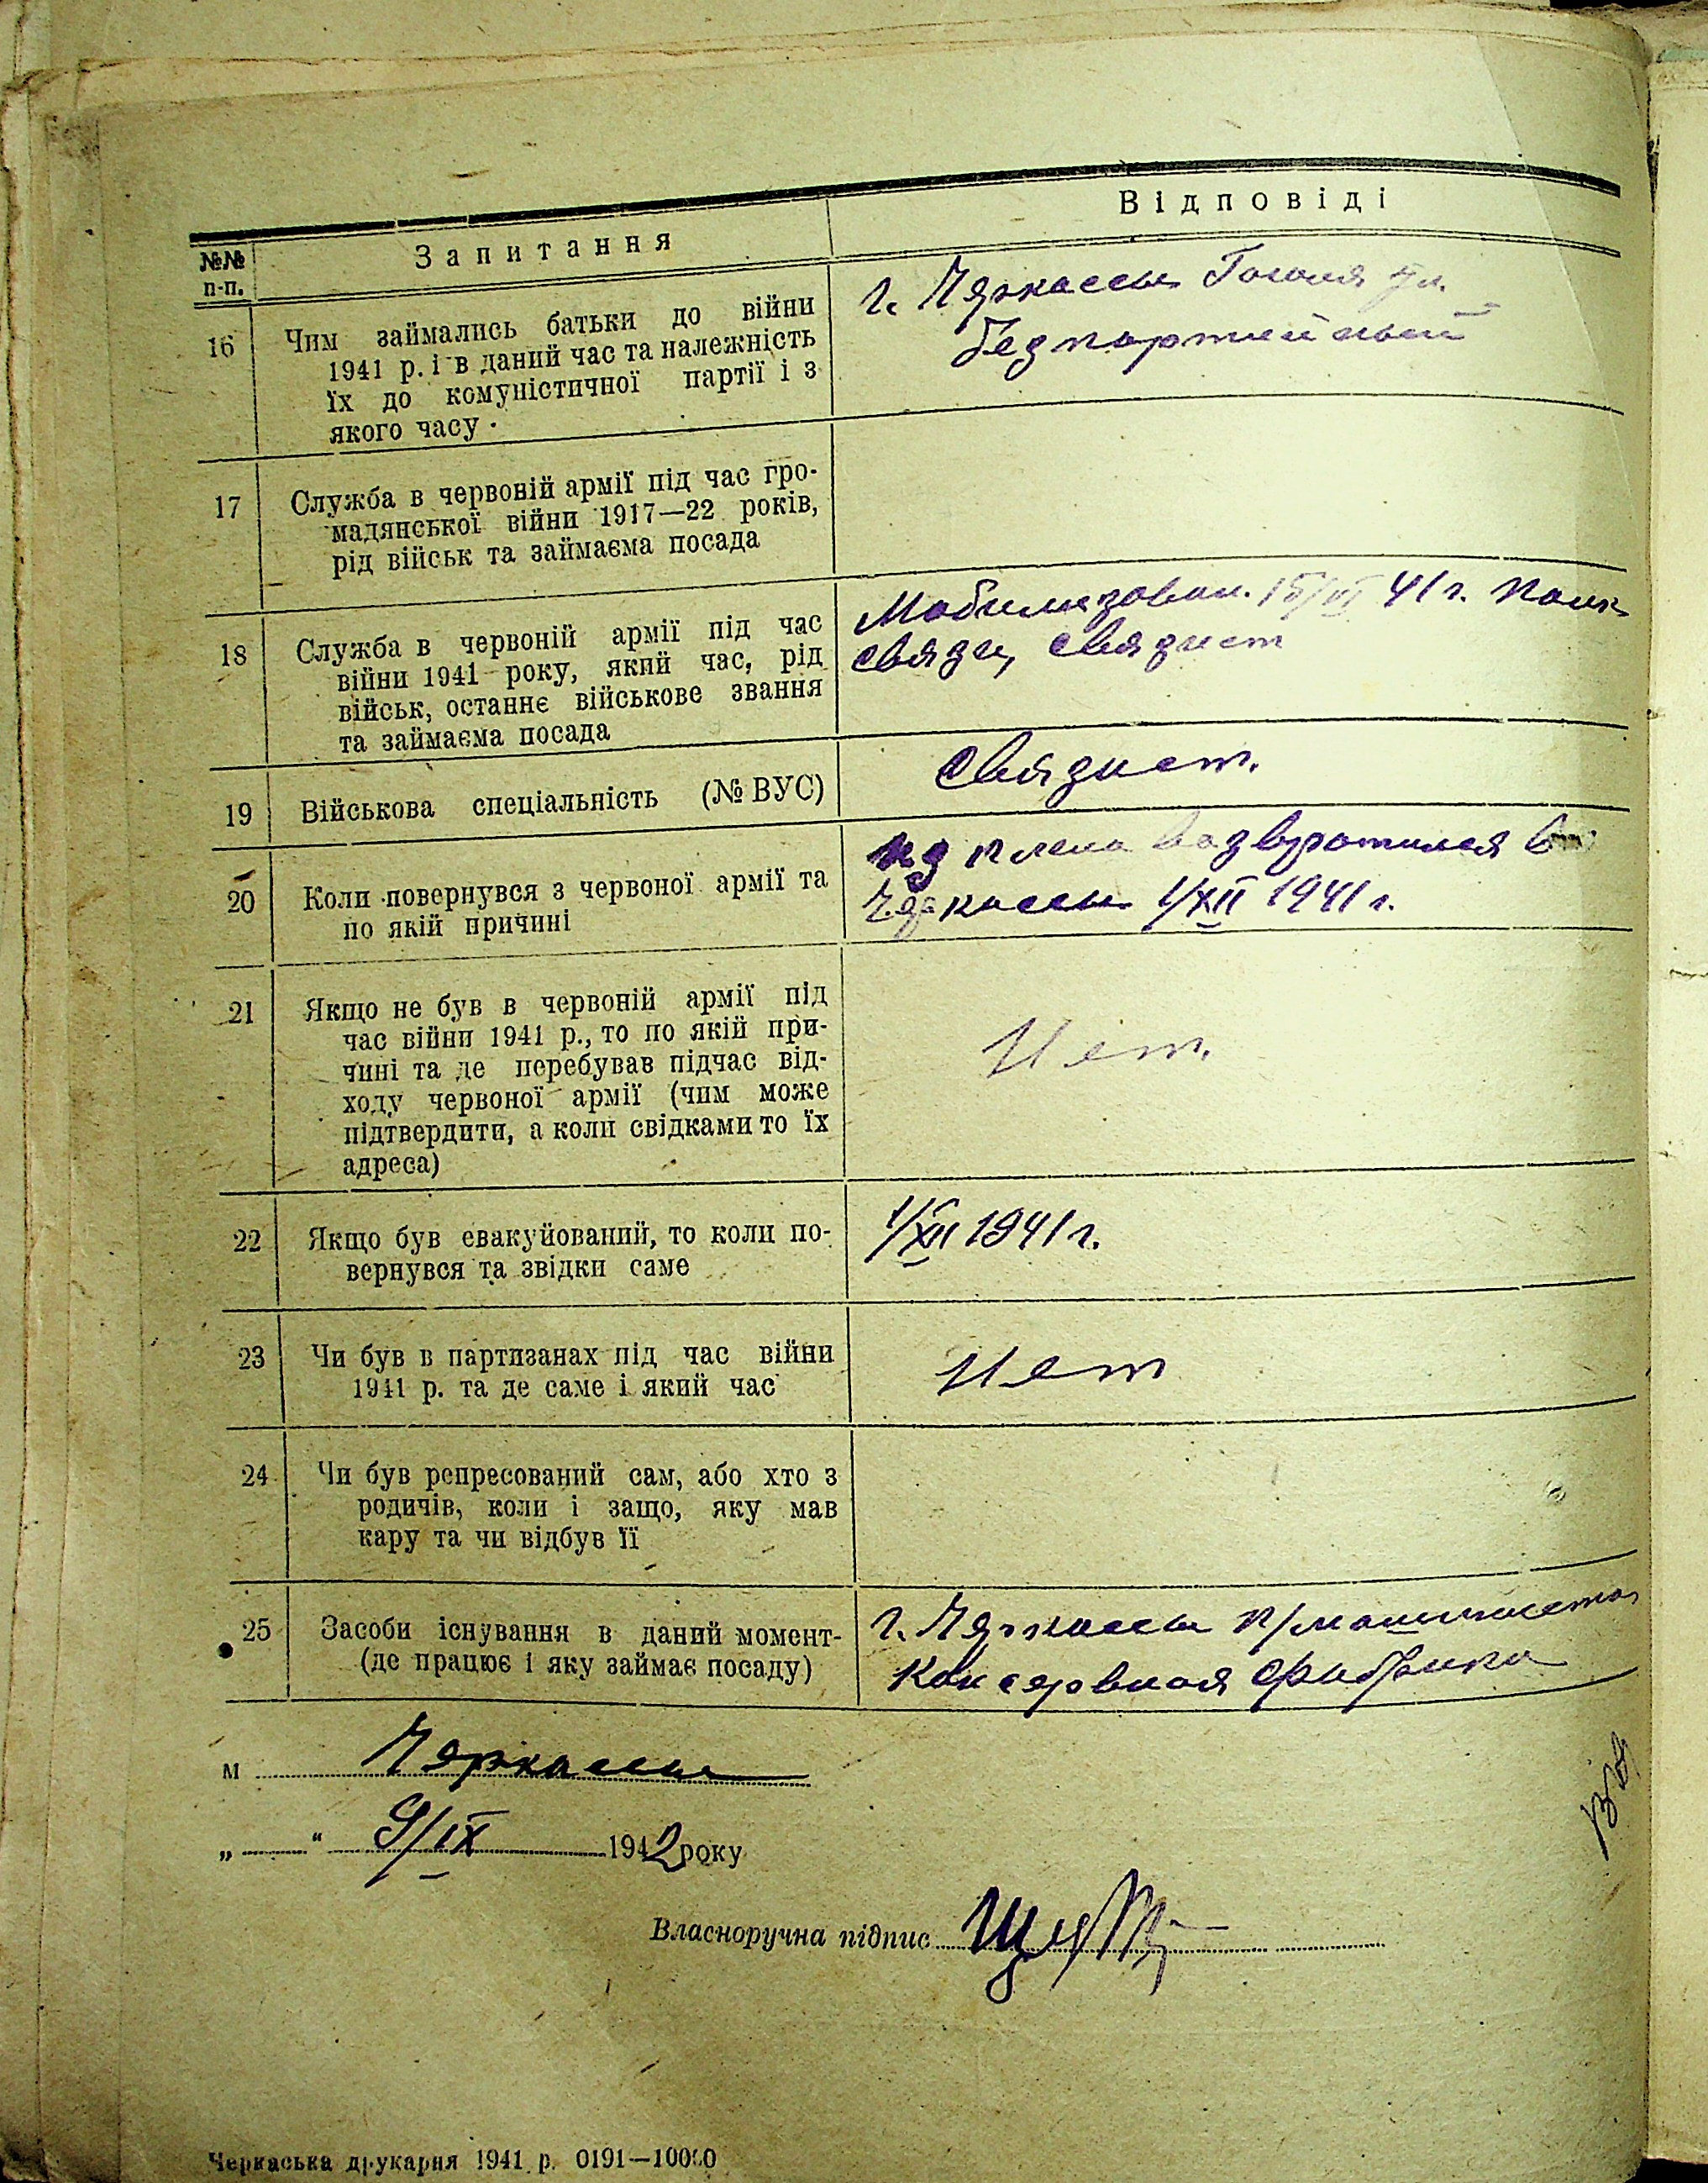 №№ п-п.
Запитання
Відповіді
16
Чим займались батьки до війни
1941 р. і в даний час та належність
їх до комуністичної партії і з
якого часу.
г. Черкассы Гоголя ул.
беспартийный
17
Служба в червоній армії під час гро-
мадянської війни 1917—22 років,
рід військ та займаєма посада
18
Служба в червоній армії під час
війни 1941 року, який час, рід
військ, останнє військове звання
та займаєма посада
Мобилизован. 41 г. полк
связи, связист
19
Військова спеціальність (№ ВУС)
Связист.
20
Коли повернувся з червоної армії та
по якій причині
из плена возвратился в
Черкассы 1/XII 1941 г.
21
Якщо не був в червоній армії під
час війни 1941 р., то по якій при-
чині та де перебував підчас від-
ходу червоної армії (чим може
підтвердити, а коли свідками то їх
адреса)
Нет.
22
Якщо був евакуйований, то коли по-
вернувся та звідки саме
1/XII 1941 г.
23
Чи був в партизанах під час війни
1941 р. та де саме і який час
Нет
24
Чи був репресований сам, або хто з
родичів, коли і защо, яку мав
кару та чи відбув її
25
Засоби існування в даний момент-
(де працює і яку займає посаду)
г. Черкассы п/машиниста
Консервная фабрика
м Черкассы
„ “ 9/IX 1942 року
Власноручна підпис
Черкаська друкарня 1941 р. 0191—10000